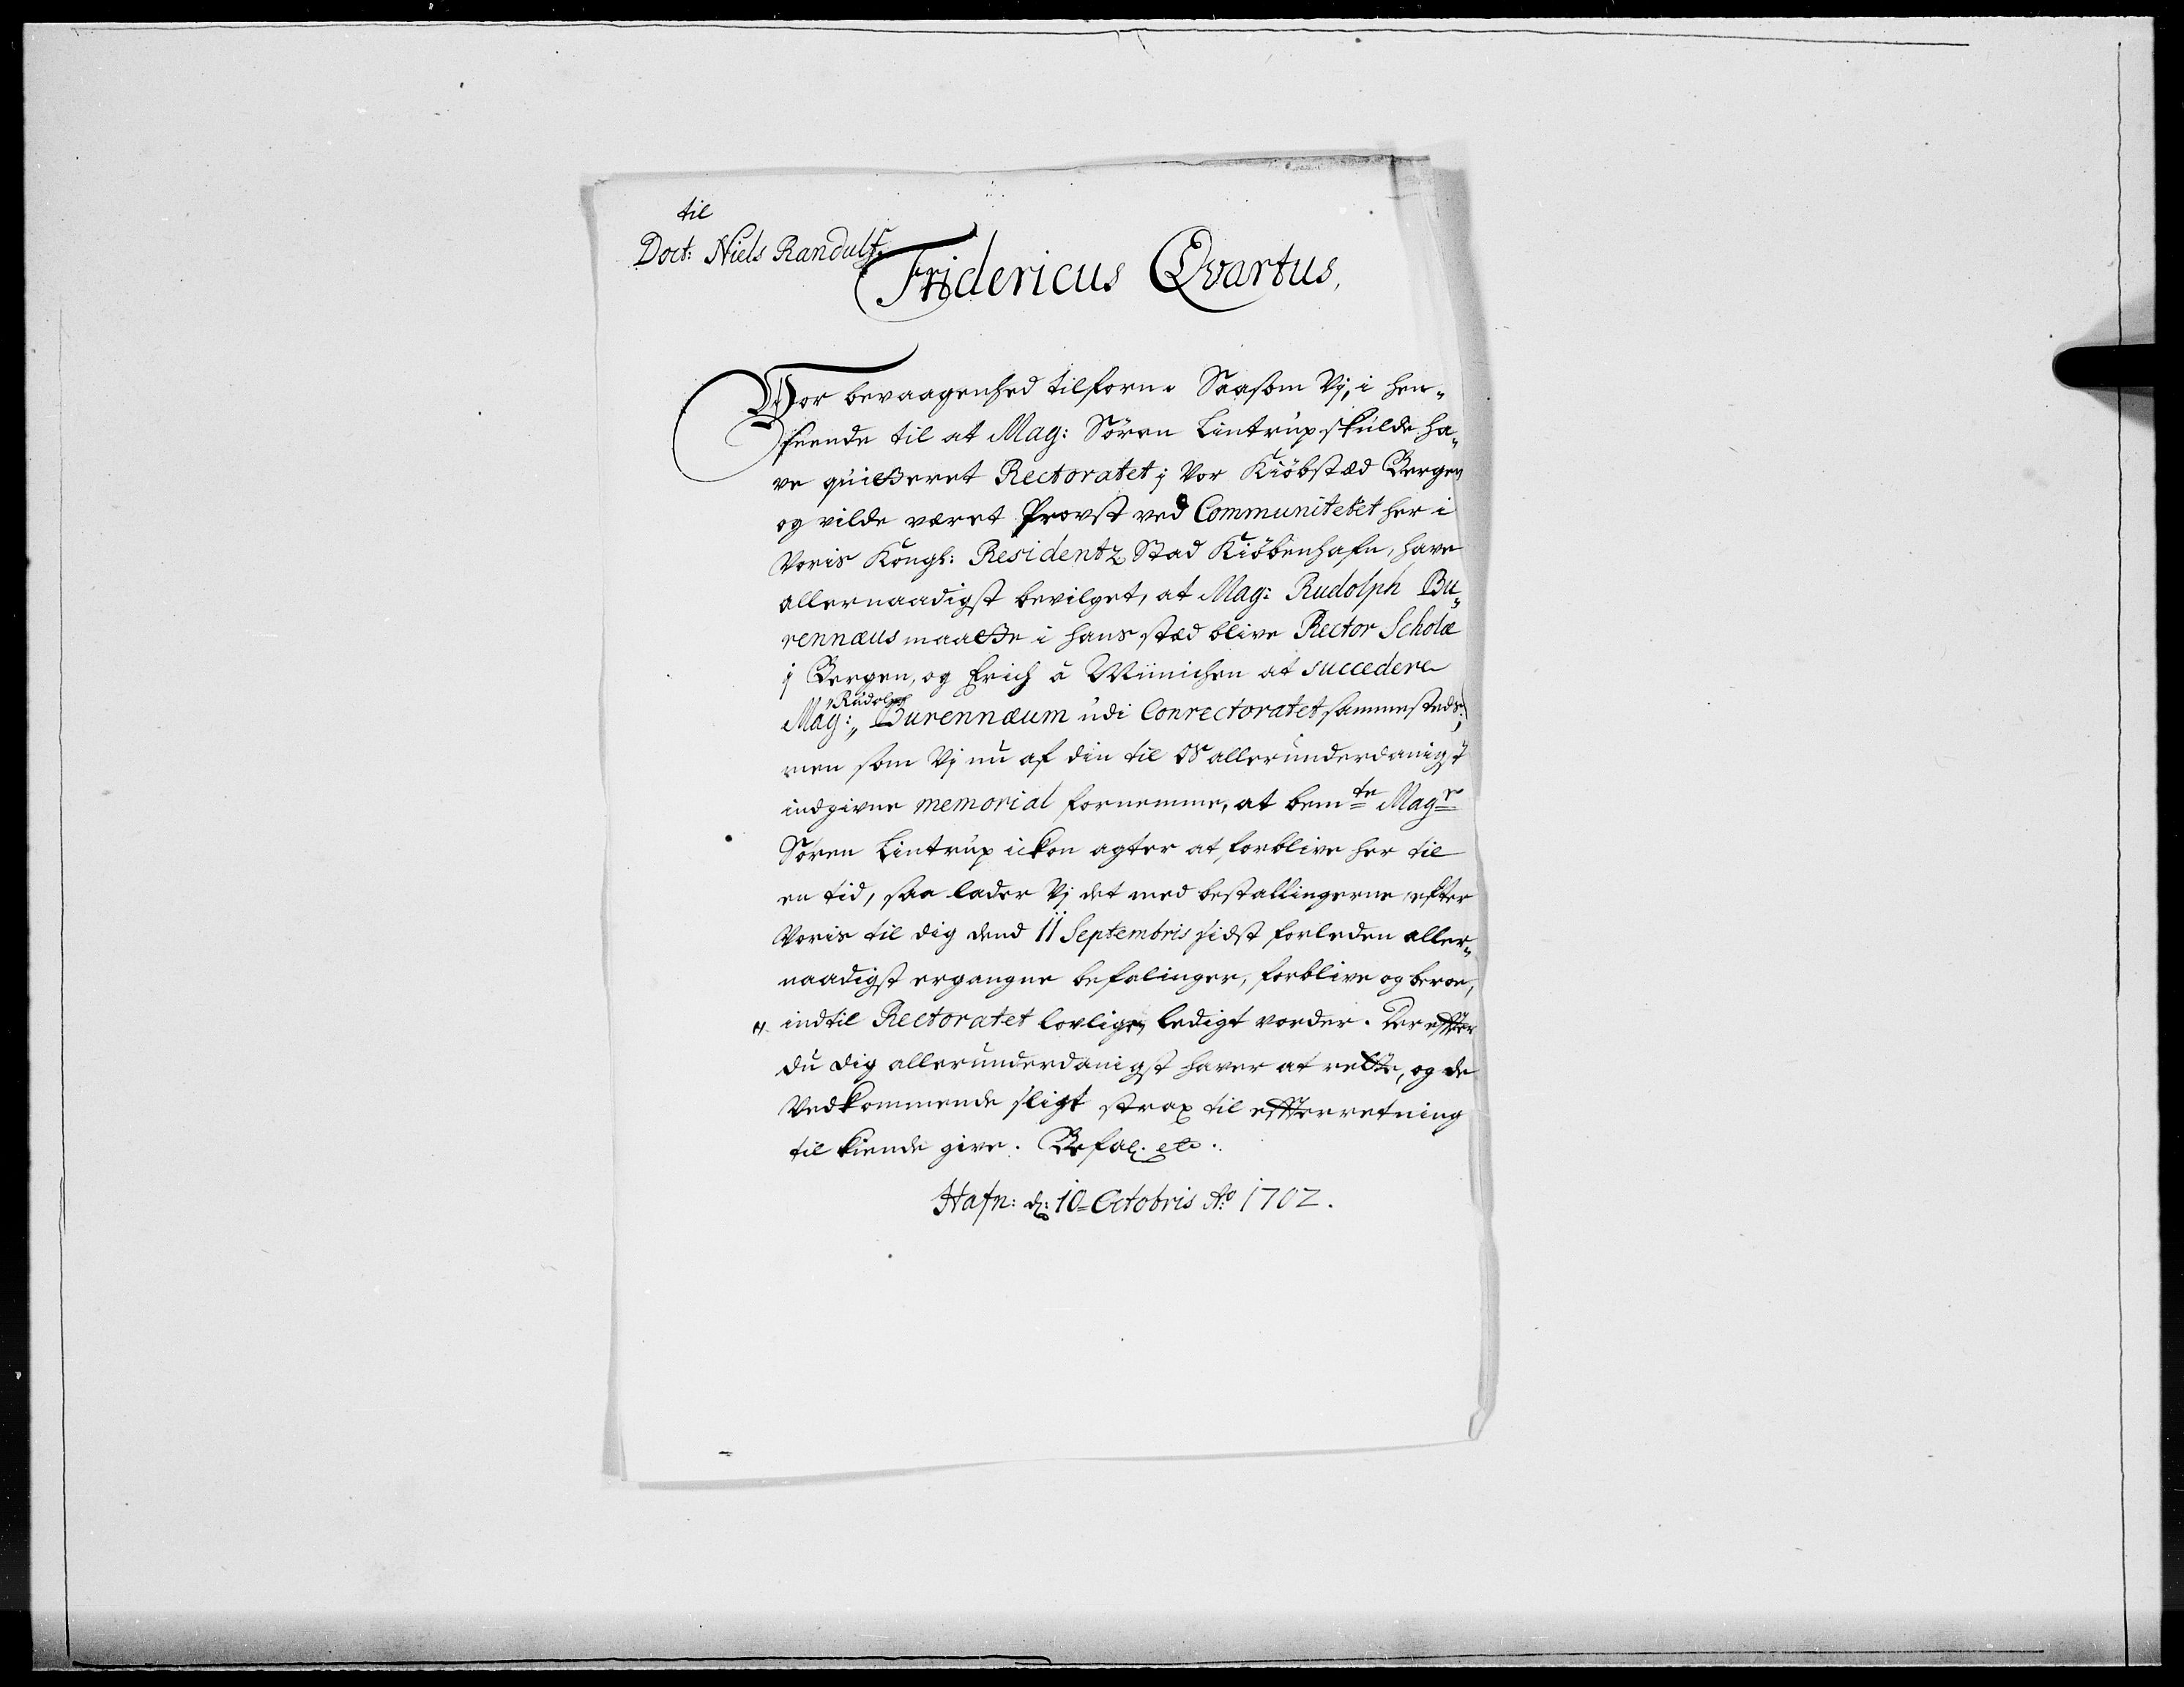 til
Doct: Niels Randulf.
Fridericus Qvartus,
Vor bevaagenhed tilforn. Saasom Vj, i hen-
seende til at Mag: Sören Lintrup skulde ha-
ve quitteret Rectoratet j Vor Kiöbstæd Bergen
og vilde været Provst ved Communitetet her i
Voris Kongl: Residentz Stad Kiöbenhafn, have
allernaadigst bevilget, at Mag: Rudolph Bu-
rennæus maatte i hans stæd blive Rector Scholæ
j Bergen, og Erich á Münichen at succedere
Mag: Rudolph Burennæum udi Conrectoratet sammesteds;
men som Vj nu af din til os allerunderdanigst
indgivne memorial fornemme, at bemte Magr
Sören Lintrup icken agter at forblive her til
en tid, saa lader Vj det med bestallingerne efter
Voris til dig dend 11 Septembris sidst forleden aller-
naadigst ergangne befalinger, forblive og beroe,
indtil Rectoratet lovligen ledigt vorder. Derefter
du dig allerunderdanigst haver at rette, og de
Vedkommende sligt strax til effterretning
til kiende give. Befal. etc.
Hafn: d: 10 Octobris Ao 1702.